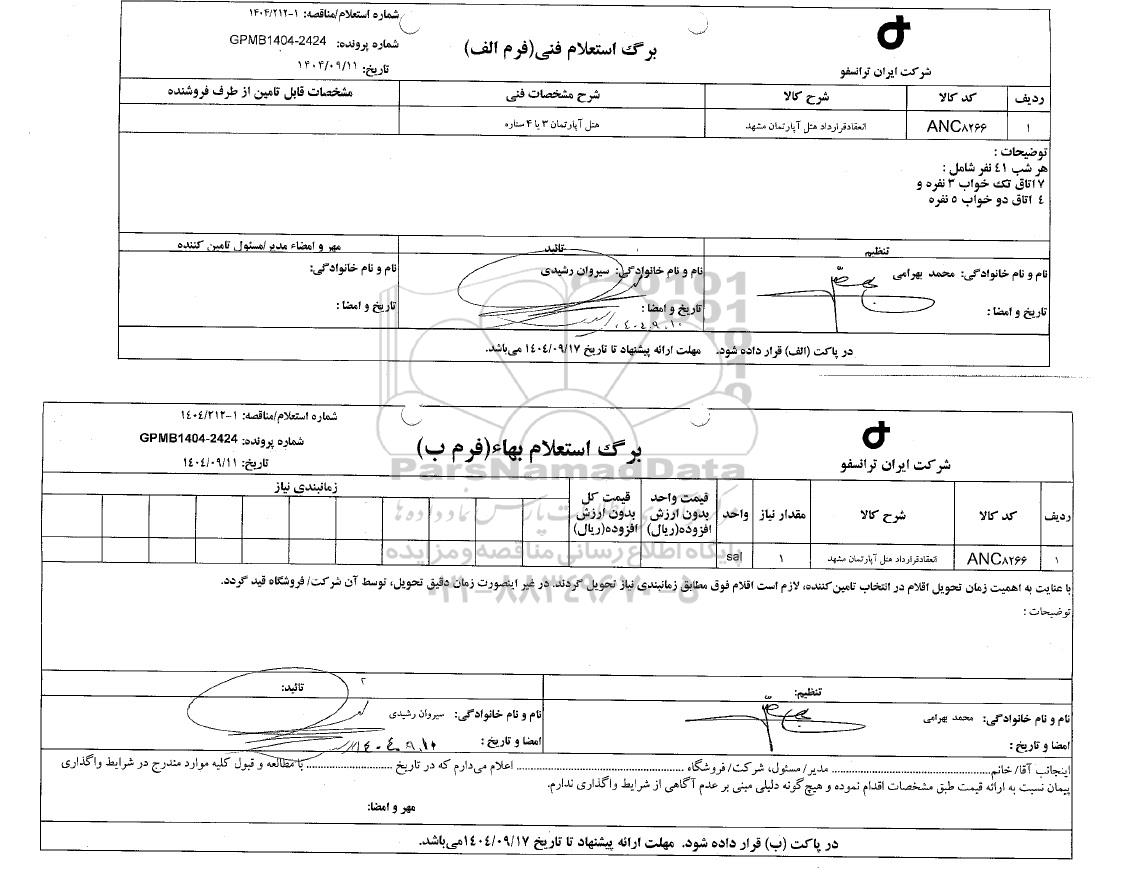 شماره استعلام/مناقصه: ۱-۱۴۰۴/۲۱۲
برگ استعلام فنی(فرم الف)
شماره پرونده: GPMB1404-2424
تاریخ: ۱۴۰۴/۰۹/۱۱
شرکت ایران ترانسفو
ردیف کد کالا شرح کالا شرح مشخصات فنی مشخصات قابل تامین از طرف فروشنده
۱ ANC۸۲۶۶ انعقادقرارداد هتل آپارتمان مشهد هتل آپارتمان ۳ یا ۴ ستاره
توضیحات :
هر شب ٤١ نفر شامل :
۷ اتاق تک خواب ۳ نفره و
٤ اتاق دو خواب ٥ نفره
تنظیم تائید مهر و امضاء مدیر/مسئول تامین کننده
نام و نام خانوادگی: محمد بهرامی نام و نام خانوادگی: سیروان رشیدی نام و نام خانوادگی:
تاریخ و امضا : تاریخ و امضا : تاریخ و امضا :
۱۴۰۴.۹.۱۰
در پاکت (الف) قرار داده شود. مهلت ارائه پیشنهاد تا تاریخ ۱٤۰٤/۰۹/۱۷ می‌باشد.
شماره استعلام/مناقصه: ۱-۱٤۰٤/۲۱۲
برگ استعلام بهاء(فرم ب)
شماره پرونده: GPMB1404-2424
تاریخ: ۱٤۰٤/۰۹/۱۱
شرکت ایران ترانسفو
ParsNamadData
پایگاه اطلاع رسانی مناقصه و مزایده
۰۲۱-۸۸۳۴۹۶۷۰-۵
ردیف کد کالا شرح کالا مقدار نیاز واحد قیمت واحد بدون ارزش افزوده(ریال) قیمت کل بدون ارزش افزوده(ریال) زمانبندی نیاز
۱ ANC۸۲۶۶ انعقادقرارداد هتل آپارتمان مشهد ۱ sal
با عنایت به اهمیت زمان تحویل اقلام در انتخاب تامین‌کننده، لازم است اقلام فوق مطابق زمانبندی نیاز تحویل گردند. در غیر اینصورت زمان دقیق تحویل، توسط آن شرکت/ فروشگاه قید گردد.
توضیحات :
تنظیم: تائید:
نام و نام خانوادگی: محمد بهرامی نام و نام خانوادگی: سیروان رشیدی
امضا و تاریخ : امضا و تاریخ :
۱۴۰۴.۹.۱۰
اینجانب آقا/ خانم........ مدیر/ مسئول، شرکت/ فروشگاه ........ اعلام می‌دارم که در تاریخ ........ با مطالعه و قبول کلیه موارد مندرج در شرایط واگذاری
پیمان نسبت به ارائه قیمت طبق مشخصات اقدام نموده و هیچ‌گونه دلیلی مبنی بر عدم آگاهی از شرایط واگذاری ندارم.
مهر و امضا:
در پاکت (ب) قرار داده شود. مهلت ارائه پیشنهاد تا تاریخ ۱٤۰٤/۰۹/۱۷می‌باشد.